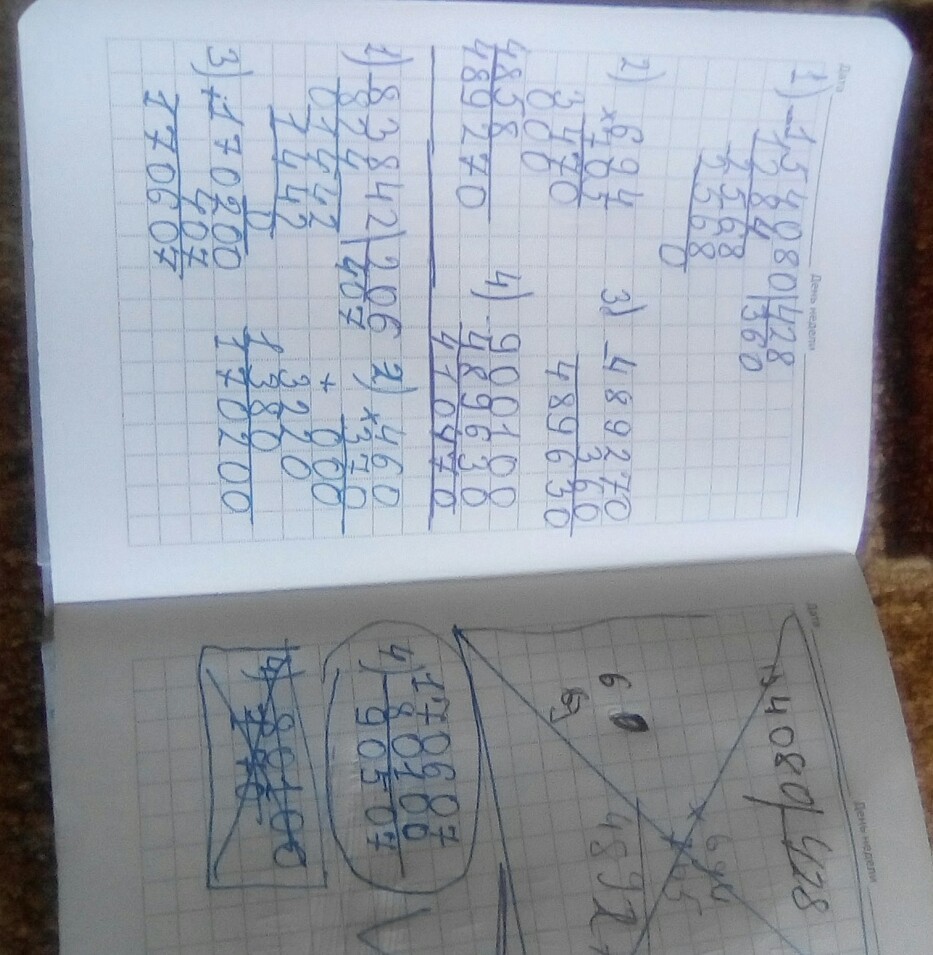 Дата День недели
1) -154080|428
1284 360
2568
2568
0
2) ×694
705
3470
000
4858
489270
3) -489270
360
489630
4) -900100
489630
410470
1) -83842|206
824 407
01442
1442
0
2) ×460
370
+000
3220
1380
170200
3) +170200
407
170607
Дата День недели
54080|428
694
60
4892
4) -170607
80100
90507
4)